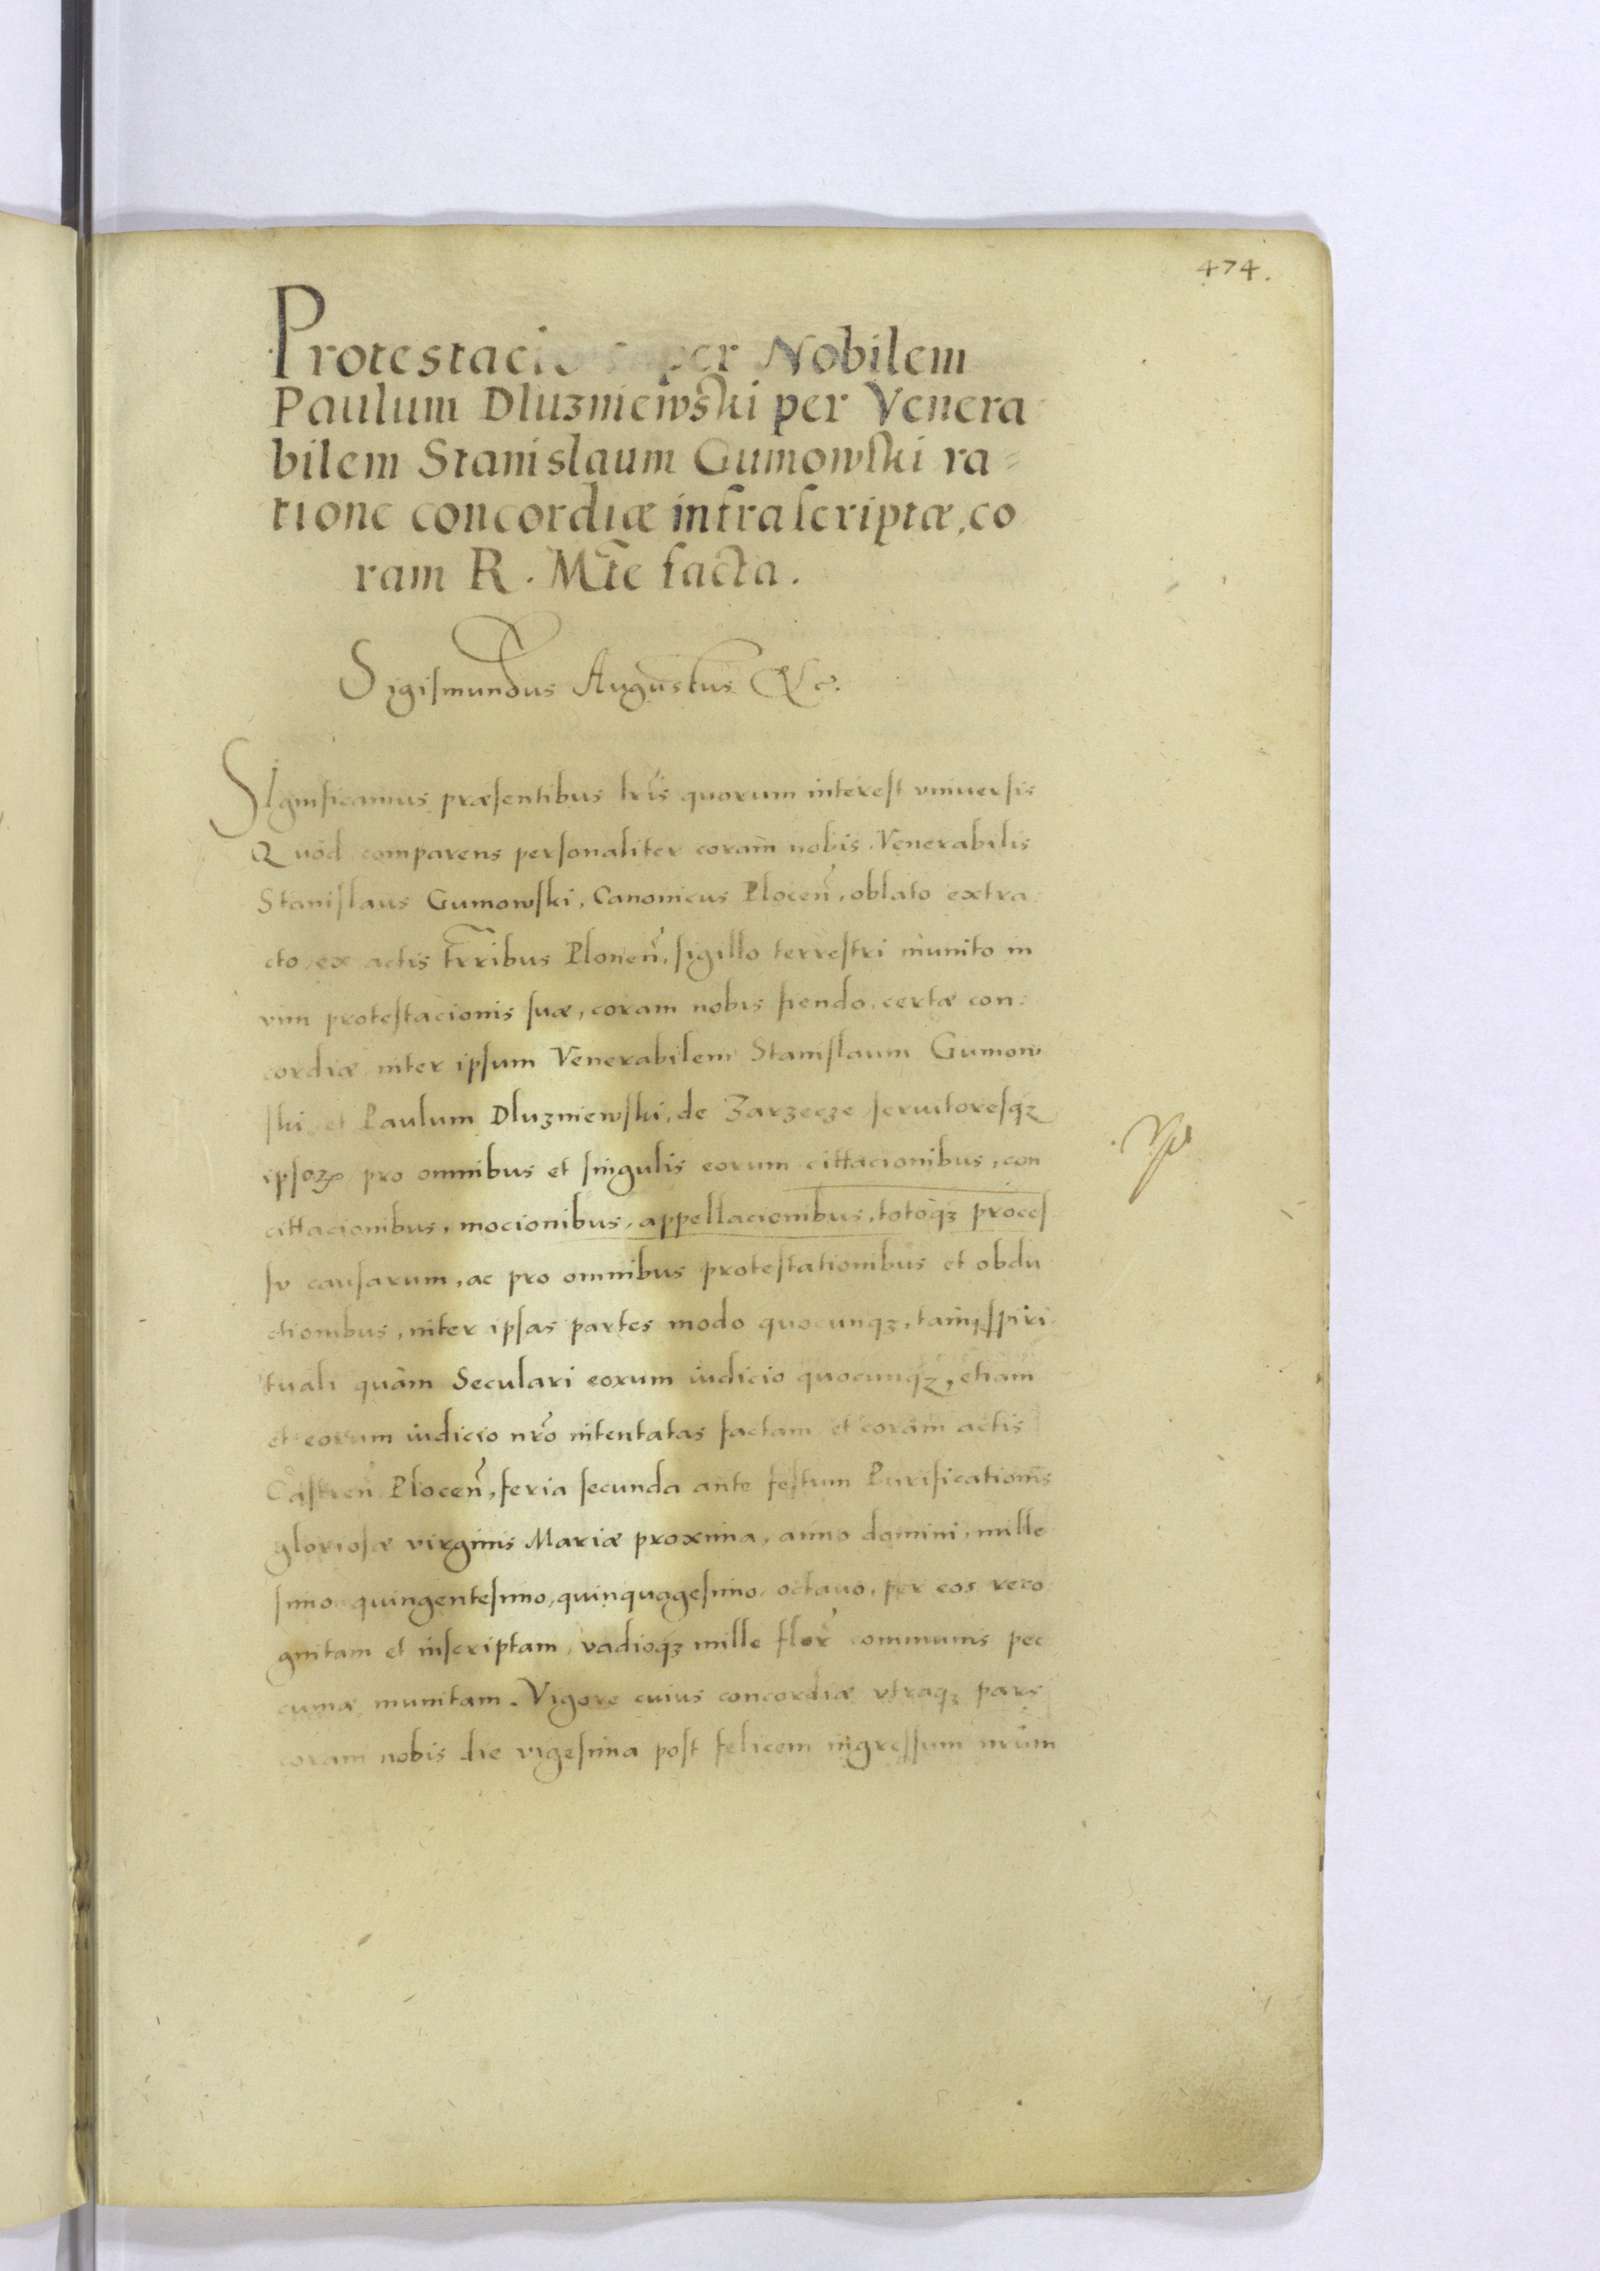 474.
Protestacio super Nobilem
Paulum Dluzniewski per Venera
bilem Stanislaum Gumowski ra=
tione concordiæ infrascriptæ, co
ram R. Mte facta.
Sigismundus Augustus &c.
Significamus præsentibus lrĩs quorum interest vniuersis
Quod comparens personaliter coram nobis Venerabilis
Stanislaus Gumowski, Canonicus Plocen̄, oblato extra
cto ex actis trribus Plonen̄, sigillo terrestri munito in
vim protestacionis suæ, coram nobis fiendo, certæ con
cordiæ inter ipsum Venerabilem Stanislaum Gumow
ski et Paulum Dluzniewski, de Zarzecze seruitoresqꝫ
ipsoꝝ pro omnibus et singulis eorum cittacionibus, con
cittacionibus, mocionibus, appellacionibus, totoqꝫ proces
su causarum, ac pro omnibus protestationibus et obdu
ctionibus, inter ipsas partes modo quocunqꝫ, tam spiri
tuali quàm Seculari eorum iudicio quocunqꝫ, etiam
et eorum iudicio nrõ intentatas factam et coram actis
Castren̄ Plocen̄, feria secunda ante festum Purificationis
gloriosæ virginis Mariæ proxima, anno domini, mille
simo quingentesimo, quinquagesimo octauo, per eos reco
gnitam et inscriptam, vadioqꝫ mille flor̄ communis pec
cuniæ munitam. Vigore cuius concordiæ vtraqꝫ pars
coram nobis die vigesima post felicem ingressum nrũm